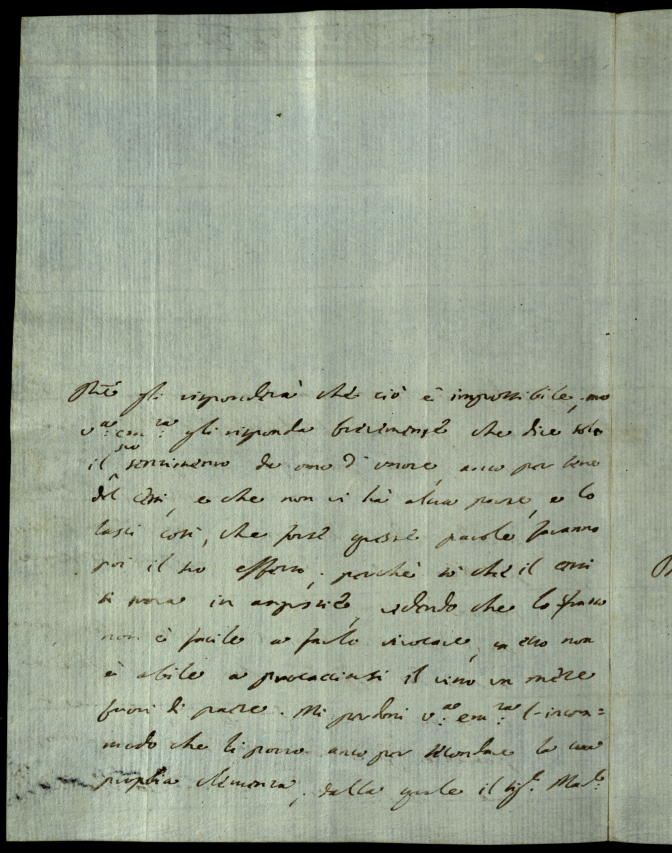 gli risponderà che ciò è impossibile, ma
v:a em:za gli risponda brevemente che dice solo
il suo sentimento da uomo d'onore, anco per bene
del Cesi, e che non vi ha altra parte, e lo
lasci così, che forse queste parole faranno
poi il suo effetto, perché so che il Cesi
si trova in angustie, vedendo che lo
non è facile a farlo rivocare, non
è abile a procacciarsi il vitto un mese
fuori di paese. Mi perdoni v:a em:za l'incom=
modo che li porto anco per secondare la sua
propria clemenza, dalla quale il sig.r